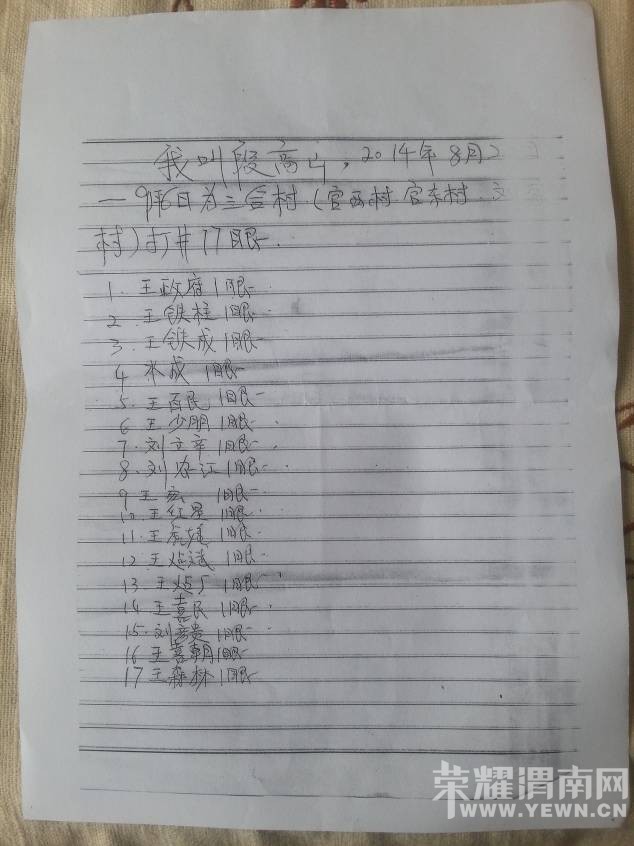 我叫段高山，2014年8月2
一9月6日为三合村（官西村 官东村
村）打井17眼.
1. 王政府1眼
2. 王铁柱1眼
3. 王铁成1眼
4 米成 1眼
5. 王百民1眼
6 王少朋1眼
7. 刘文辛1眼
8. 刘农江1眼
9 王宏 1眼
10 王红星1眼
11. 王 1眼
12 王 斌1眼
13 王 1眼
14 王喜民1眼
15. 刘彦贵1眼
16 王喜朝1眼
17 王森林1眼
荣耀渭南网
WWW.YEWN.CN